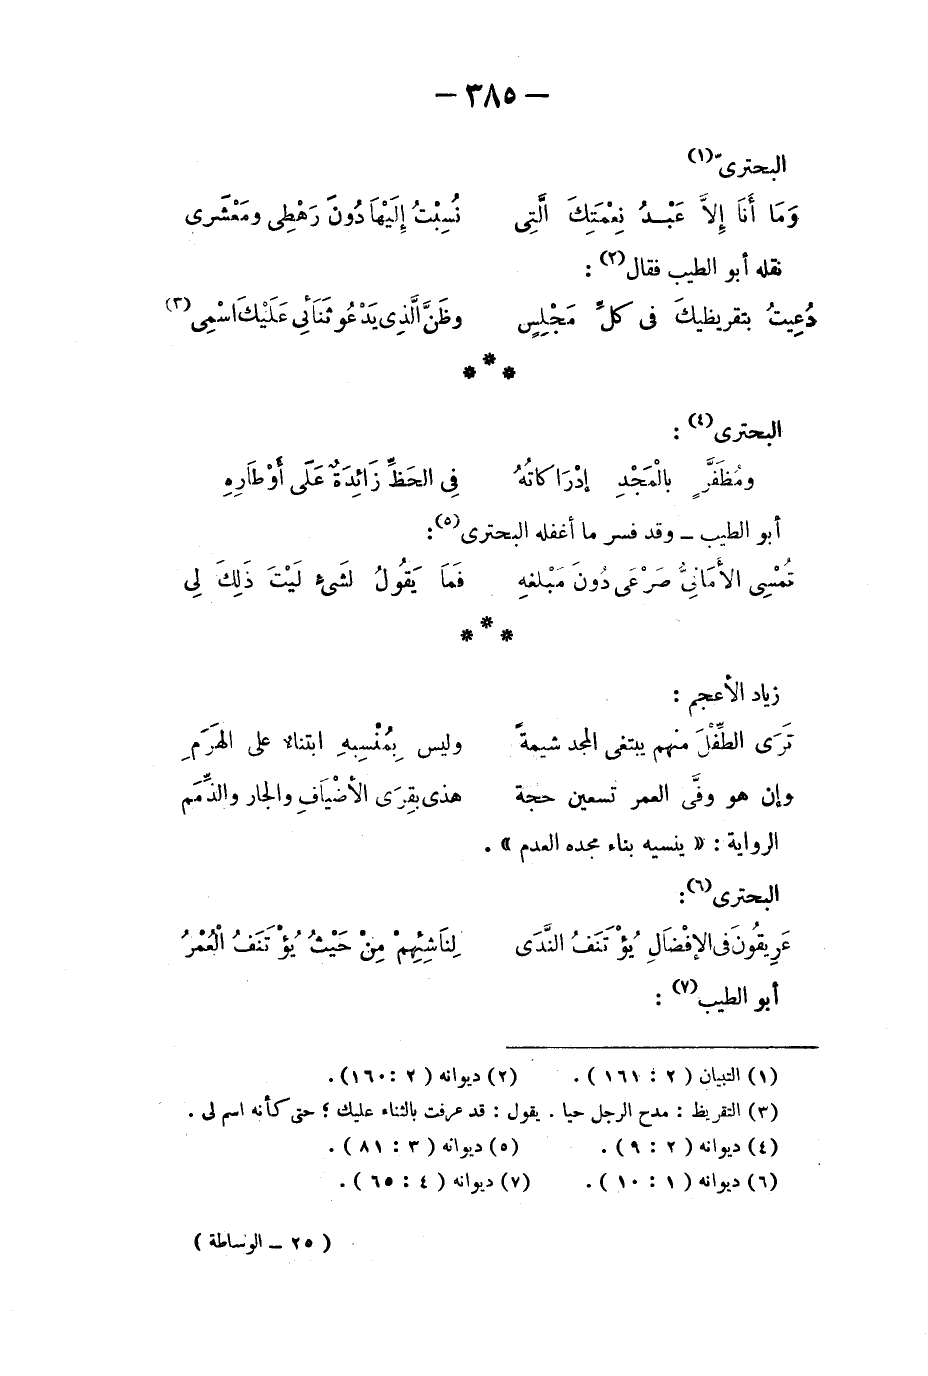 — ٣٨٥ —
البحترىّ(١)
وَمَا أَنَا إِلاَّ عَبْـدُ نِعْمَتِكَ الَّتِى نُسِبْتُ إِلَيْهَا دُونَ رَهْطِى ومَعْشَرى
نقله أبو الطيب فقال(٢) :
دُعِيتُ بتقريظيكَ فى كلِّ مَجْلِسٍ وظَنَّ الَّذِى يَدْعُو ثَنَائِى عَلَيْكَ اسْمِى(٣)
* * *
البحترى(٤) :
ومُظَفَّرٍ بالْمَجْدِ إدْرَاكاتُهُ فِى الحَظِّ زَائِدَةٌ عَلَى أَوْطَارِهِ
أبو الطيب ـ وقد فسر ما أغفله البحترى(٥):
تُمْسِى الأَمَانِىُّ صَرْعَى دُونَ مَبْلغهِ فَمَا يَقُولُ لشَىْءِ لَيْتَ ذَلِكَ لِى
* * *
زياد الأعجم :
تَرَى الطِّفْلَ منهم يبتغى المجد شيمةً وليس بِمُنْسِيهِ ابتناء على الهَرَمِ
وإن هو وفَّى العمر تسعين حجة هذى بقِرَى الأضْيَافِ والجار والذِّمَم
الرواية : « ينسيه بناء مجده العدم » .
البحترى(٦):
عَرِيقُونَ فى الإفْضَالِ يُؤْتَنَفُ النَّدَى لِنَاشِئِهِمْ مِنْ حَيْثُ يُؤْتَنَفُ الْعُمْرُ
أبو الطيب(٧) :
(١) التبيان ( ٢ : ١٦١ ) . (٢) ديوانه ( ٢ : ١٦٠) .
(٣) التقريظ : مدح الرجل حيا . يقول : قد عرفت بالثناء عليك ؛ حتى كأنه اسم لى .
(٤) ديوانه ( ٢ : ٩ ) . (٥) ديوانه ( ٣ : ٨١ ) .
(٦) ديوانه ( ١ : ١٠ ) . (٧) ديوانه ( ٤ : ٦٥ ) .
( ٢٥ ـ الوساطة )